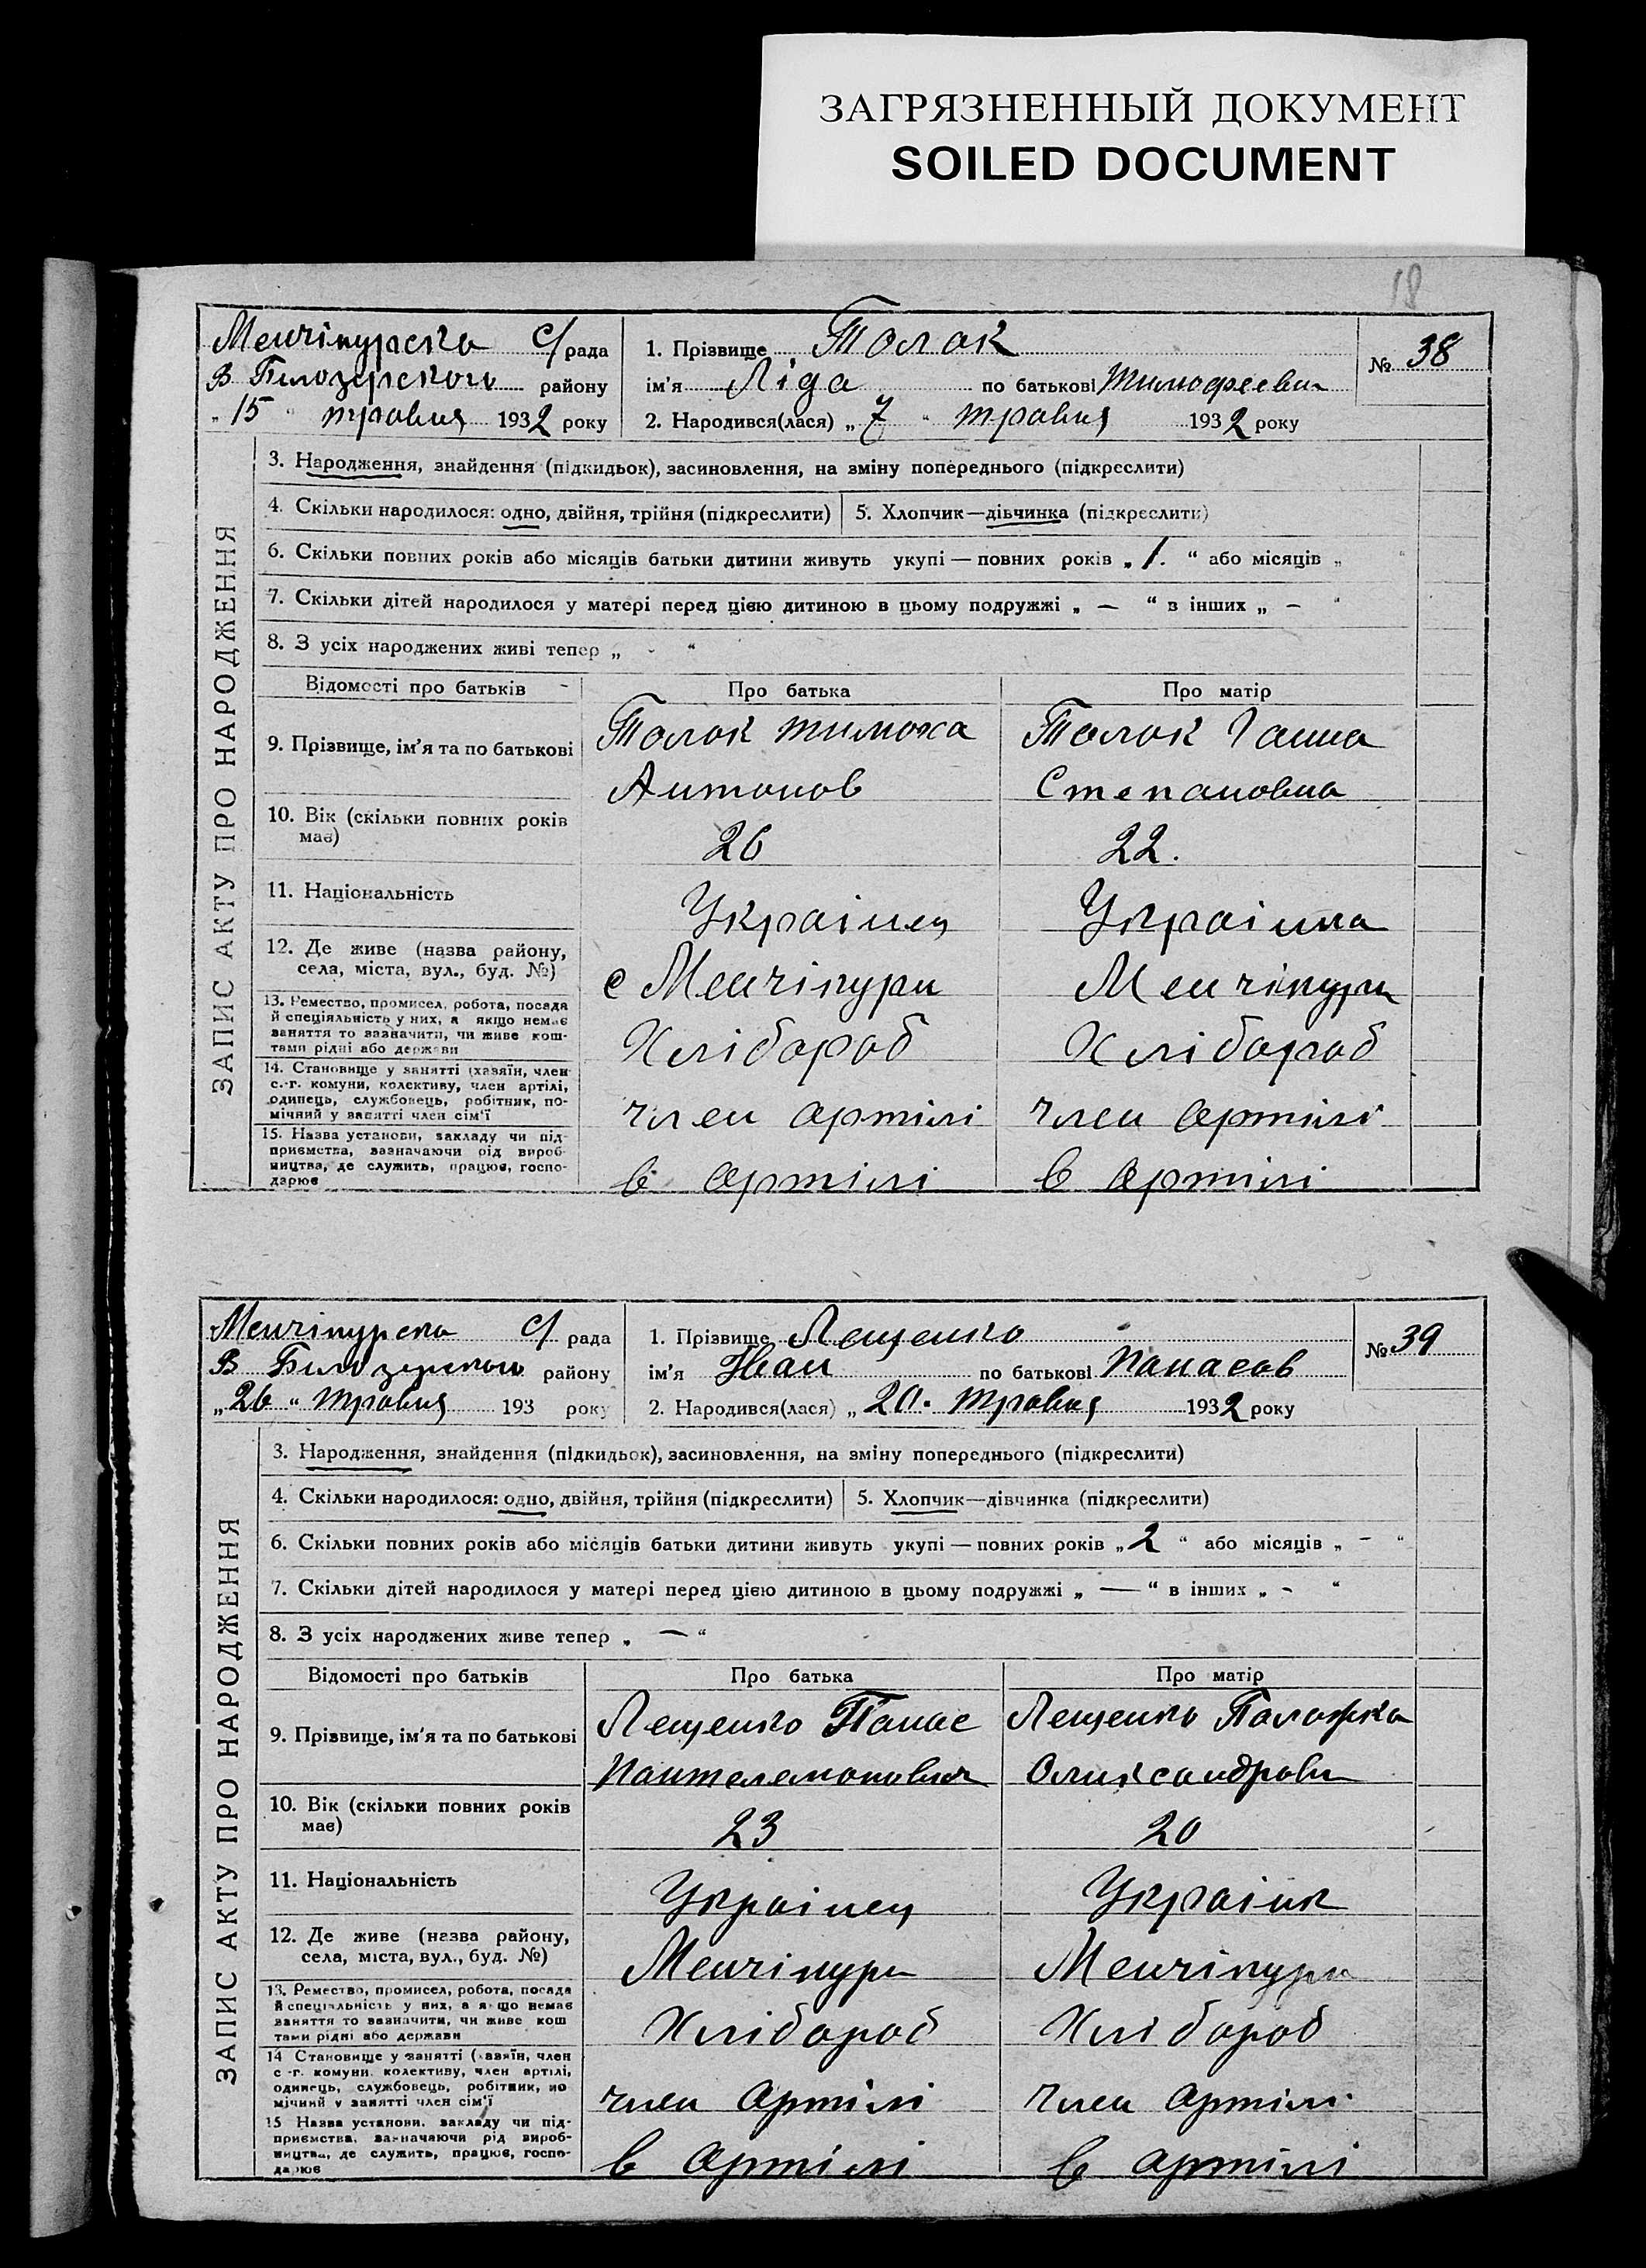 ЗАГРЯЗНЕННЫЙ ДОКУМЕНТ
SOILED DOCUMENT
18
Менчікурска с/рада
В Білозерского району
„15“ травня 1932 року
1. Прізвище Толок
ім'я Ліда по батькові Тимофеевна
2. Народився(лася) „7“ травня 1932 року
№ 38
ЗАПИС АКТУ ПРО НАРОДЖЕННЯ
3. Народження, знайдення (підкидьок), засиновлення, на зміну попереднього (підкреслити)
4. Скільки народилося: одно, двійня, трійня (підкреслити) 5. Хлопчик—дівчинка (підкреслити)
6. Скільки повних років або місяців батьки дитини живуть укупі — повних років „1.“ або місяців „ “
7. Скільки дітей народилося у матері перед цією дитиною в цьому подружжі „ — “ в інших „ — “
8. З усіх народжених живі тепер „ - “
Відомості про батьків Про батька Про матір
9. Прізвище, ім'я та по батькові Толок Тимоха Толок Ганна
Антонов Степановна
10. Вік (скільки повних років
має) 26 22.
11. Національність Україنец Українка
12. Де живе (назва району,
села, міста, вул., буд. №) с Менчікури Менчікури
13. Ремество, промисел, робота, посада
й спеціяльність у них, а якщо немає
заняття то зазначити, чи живе кош-
тами рідні або держави Хлібороб Хлібороб
14. Становище у занятті (хазяїн, член
с.-г. комуни, колективу, член артілі,
одинець, службовець, робітник, по-
мічний у занятті член сім'ї член артілі член артілі
15. Назва установи, закладу чи під-
приємства, зазначаючи рід вироб-
ництва, де служить, працює, госпо-
дарює в артілі в артілі
Менчікурска с/рада
В Білозерского району
„26“ травня 193 року
1. Прізвище Лещенко
ім'я Иван по батькові Панасов
2. Народився(лася) „20. травня 1932 року
№ 39
ЗАПИС АКТУ ПРО НАРОДЖЕННЯ
3. Народження, знайдення (підкидьок), засиновлення, на зміну попереднього (підкреслити)
4. Скільки народилося: одно, двійня, трійня (підкреслити) 5. Хлопчик—дівчинка (підкреслити)
6. Скільки повних років або місяців батьки дитини живуть укупі — повних років „2“ або місяців „ — “
7. Скільки дітей народилося у матері перед цією дитиною в цьому подружжі „ — “ в інших „ - “
8. З усіх народжених живе тепер „ — “
Відомості про батьків Про батька Про матір
9. Прізвище, ім'я та по батькові Лещенко Панас Лещенко Палажка
Пантелемонович Олександровн
10. Вік (скільки повних років
має) 23 20
11. Національність Українец Українк
12. Де живе (назва району,
села, міста, вул., буд. №) Менчікури Менчікури
13. Ремество, промисел, робота, посада
й спеціяльність у них, а якщо немає
заняття то зазначити, чи живе кош
тами рідні або держави Хлібороб Хлібороб
14 Становище у занятті (хазяїн, член
с-г. комуни, колективу, член артілі,
одинець, службовець, робітник, по
мічний у занятті член сім'ї член артілі член артілі
15 Назва установи, закладу чи під-
приємства, зазначаючи рід вироб-
ництва, де служить, працює, госпо-
дарює в артілі в артілі